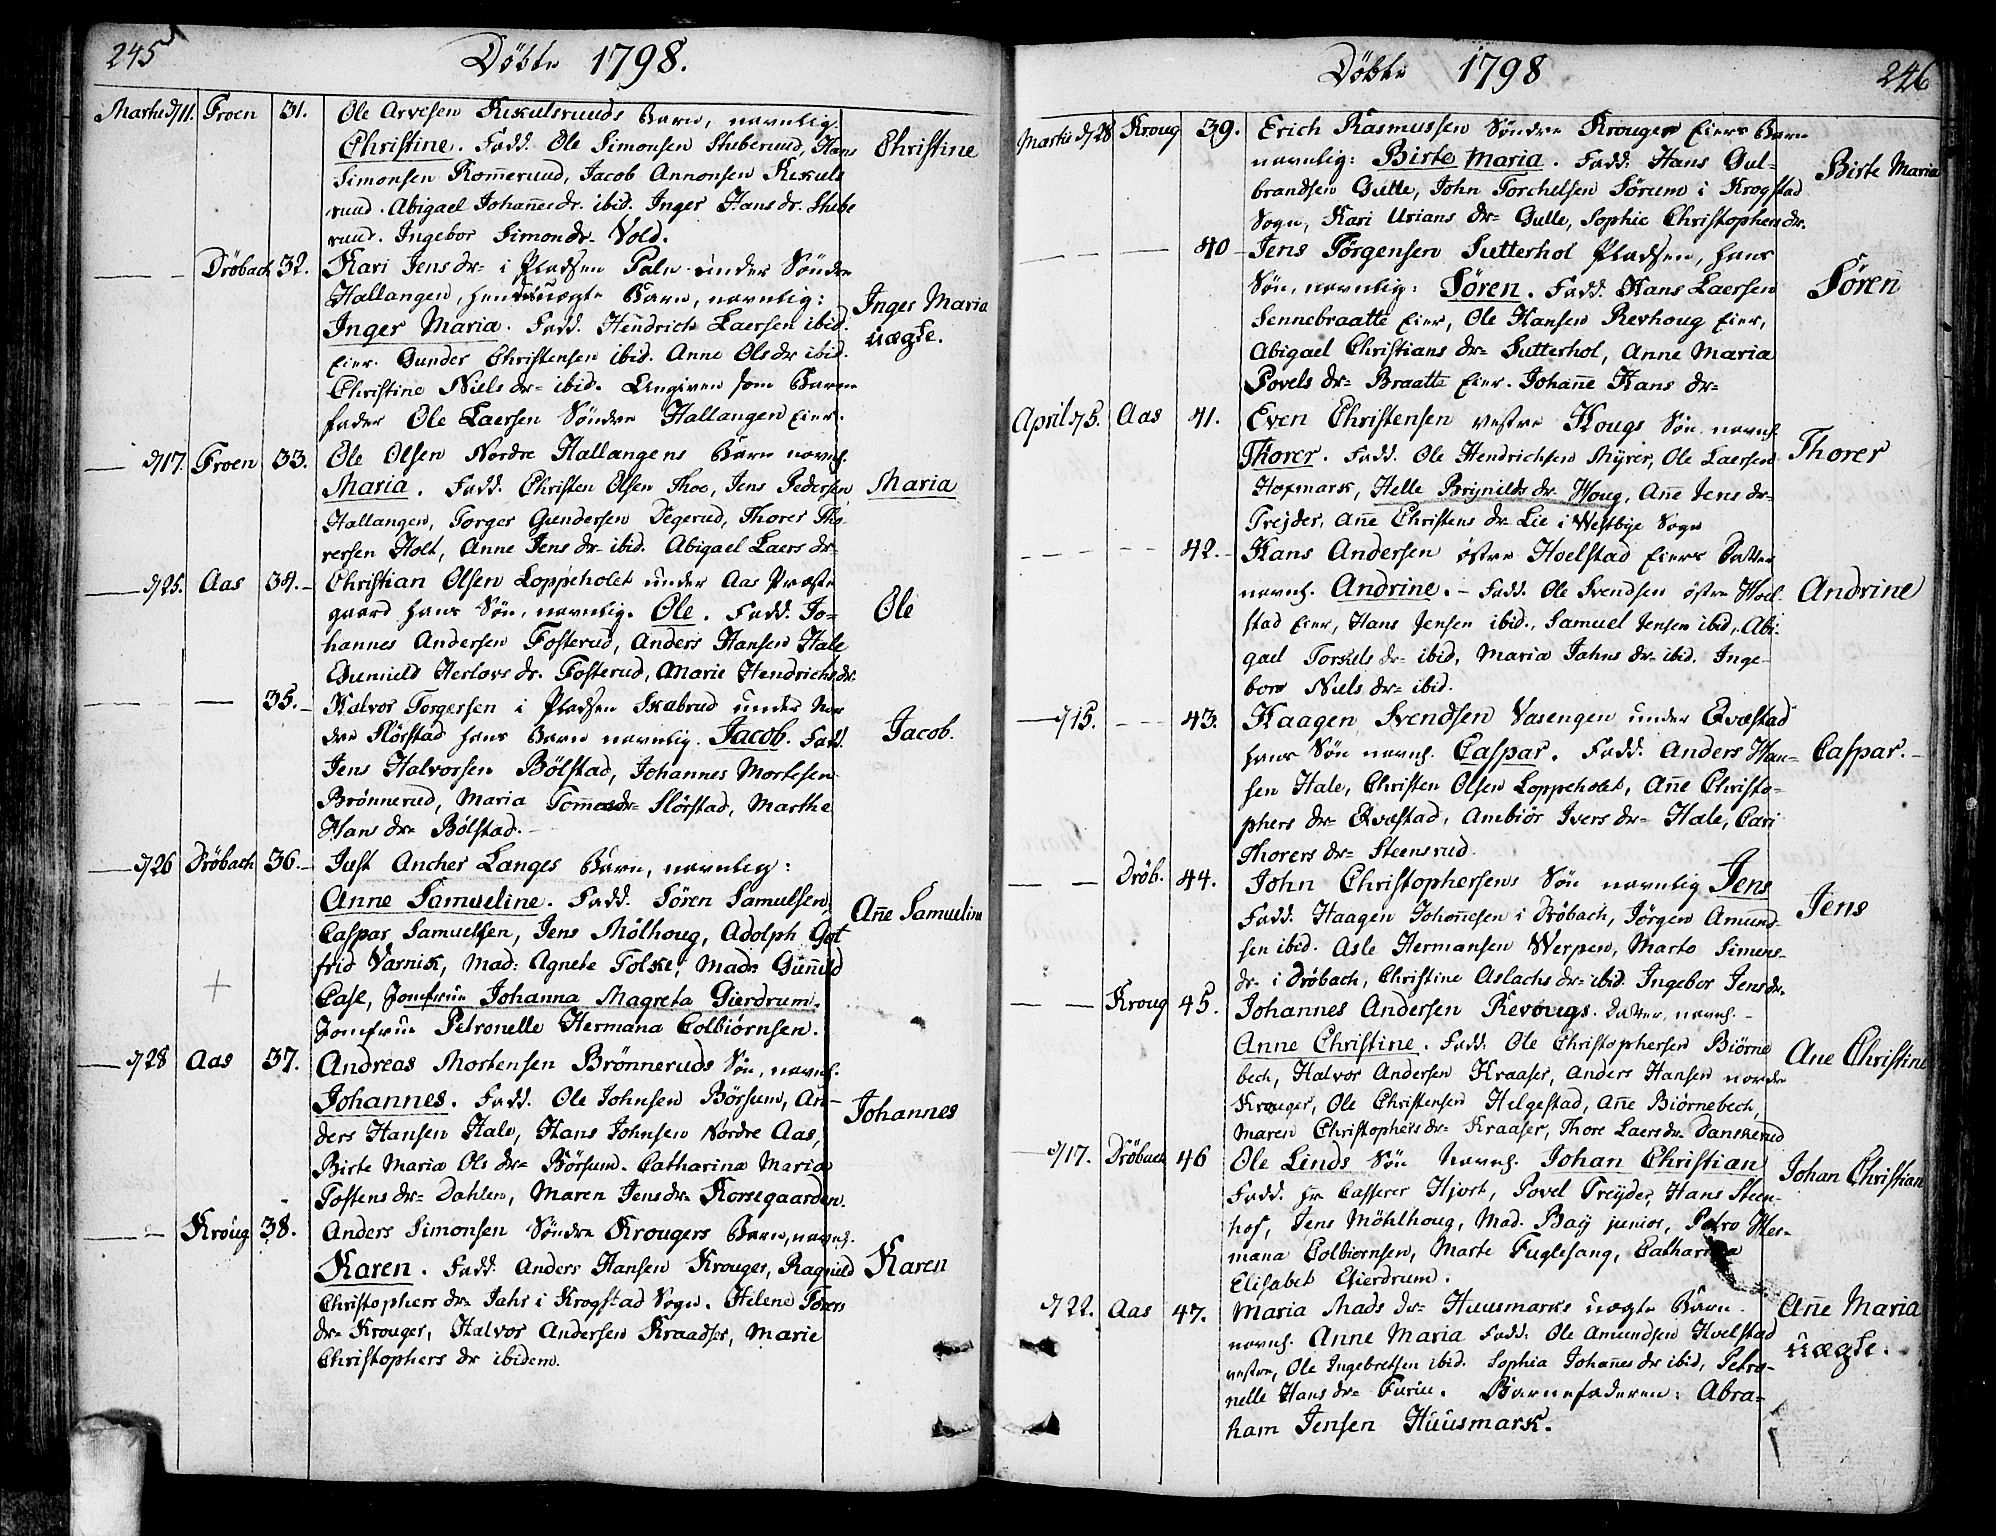 245
Döbte 1798.
Martii d/11. Froen 31. Ole Arvesen Kikulsruuds Barn, navnlig.
Christine. Fadd. Ole Simonsen Stuberud, Hans Christine
Simonsen Romerud, Jacob Annonsen Kikuls
ruud. Abigael Johannesdr. ibid. Inger Hans dr. Stube
ruud. Ingebor Simons dr. Vold.
Dröbach 32. Kari Jens dr= i Pladsen Pale under Söndre
Hallangen, hendes uægte Barn, navnlig:
Inger Maria. Fadd. Hendrich Laersen ibid. Inger Maria
Eier. Gunder Christensen ibid. Anne Ols dr ibid. uægte.
Christine Niels dr= ibid. Angiven som Barne
fader Ole Laersen Söndre Hallangen Eier.
d/17. Froen 33. Ole Olsen Nordre Hallangens Barn navnl.
Maria. Fadd. Christen Olsen Thoe, Jens Pedersen Maria
Hallangen, Torger Gundersen Degerud, Thorer Tho
rersen Holt, Anne Jens dr= ibid. Abigael Laers dr=
d/25. Aas 34. Christian Olsen Loppeholet under Aas Præste
gaard hans Sön, navnlig. Ole. Fadd. Jo= Ole
hannes Andersen Fosterud, Anders Hansen Hale
Gunnild Herlovs dr. Fosterud, Marie Hendrichs dr.
35. Halvor Torgersen i Pladsen Skabrud under Nor
dre Slörstad hans Barn navnlig. Jacob. Fadd. Jacob.
Jens Halvorsen Bölstad, Johannes Mortesen
Brönnerud, Maria Tommesdr= Slörstad, Marthe
Hans dr= Bölstad.
d/26 Dröbach 36. Just Ancher Langes Barn, navnlig:
Anne Samueline. Fadd. Sören Samulsen, Añe Samueline
Caspar Samuelsen, Jens Mölhoug, Adolph Got
frid Varnik, Mad: Agnete Folke, Mads Gunnild
Case, Jomfrue Johanna Magreta Gierdrum.
Jomfrue Petronelle Hermana Colbiörnsen.
d/28 Aas 37. Andreas Mortensen Brönneruds Sön, navnl.
Johannes. Fadd. Ole Johnsen Börsum, An= Johannes
ders Hansen Hale, Hans Johnsen Nordre Aas,
Birte Maria Ols dr= Börsum. Catharina Maria
Tostens dr= Dahlen, Maren Jens dr= Korsegaarden.
Kroug 38. Anders Simonsen Söndre Krougers Barn, navnl.
Karen. Fadd. Anders Hansen Krouger, Ragnild Karen
Christophers dr= Jahr i Krogstad Sogn. Helene Sörens
dr= Krouger, Halvor Andersen Kraadser, Marie
Christophers dr ibidem.
246
Döbte 1798
Martii d/28 Kroug 39. Erich Rasmussen Söndre Krouger Eiers Barn
navnlig: Birte Maria. Fadd: Hans Gul= Birte Maria
brandsen Gulle, John Torchelsen Sörum i Krogstad
Sogn, Kari Urians dr= Gulle, Sophie Christophers dr.
40 Jens Törgensen Sutterhol Pladsen, hans
Sön, navnlig: Sören. Fadd. Hans Laersen Sören
Sennebraatte Eier, Ole Hansen Revhoug Eier,
Abigael Christians dr= Sutterhol, Anne Maria
Povels dr= Braatte Eier. Johañe Hans dr=
April d/5. Aas 41. Even Christensen vestre Hougs Sön navnl.
Thorer. Fadd. Ole Hendrichsen Myrer, Ole Laersen Thorer
Hofmark, Helle Brynilds dr. Houg, Añe Jens dr=
Trejder, Añe Christens dr. Lie i Westbye Sogn
42. Hans Andersen östre Hoelstad Eiers Datter
navnl. Andrine. Fadd. Ole Svendsen östre Hoel Andrine
stad Eier, Hans Jensen ibid., Samuel Jensen ibid, Abi=
gael Torkels dr= ibid, Maria Jahns dr= ibid. Inge=
bore Niels dr= ibid.
d/15. 43. Haagen Svendsen Vasengen under Qvæstad
hans Sön navnl. Caspar. Fadd. Anders Han= Caspar.
sen Hale, Christen Olsen Loppeholet, Añe Christo=
phers dr= Qvæstad, Ambiör Ivers dr= Hale, Cari
Thorers dr= Steensrud.
Dröb. 44. John Christophersens Sön navnlig Jens
Fadd. Haagen Johañesen i Dröbach, Jörgen Amund= Jens
sen ibid. Asle Hermansen Werpen, Marte Simens=
dr= i Dröbach, Christine Aslachs dr= ibid. Ingebor Jens dr=
Kroug 45. Johannes Andersen Revougs Datter, navnl.
Anne Christine. Fadd. Ole Christophersen Biörne Ane Christine
bech, Halvor Andersen Kraaser, Anders Hansen nordre
Krouger, Ole Christensen Helgestad, Añe Biörnebech,
Maren Christophers dr= Kraaser, Thore Laers dr= Danskerud
d/17. Dröbach 46 Ole Linds Sön Navnl. Johan Christian Johan Christian
Fadd. Hr Casserer Hjort, Povel Treyder, Hans Steen=
hof, Jens Möhlhoug, Mad. Bay junior, Petro Her=
mana Colbiornsen, Marte Fuglesang, Catharina
Elisabet Gierdrum.
d/22. Aas 47. Maria Mads dr= Huusmarks uægte Barn. Añe Maria
navnl. Anne Maria Fadd. Ole Amundsen Hoelstad uægte.
vestre, Ole Ingebretsen ibid. Sophia Johañes dr ibid, Petro=
nelle Hans dr= Furiu. Barnefaderen: Abra=
ham Jensen Huusmark.